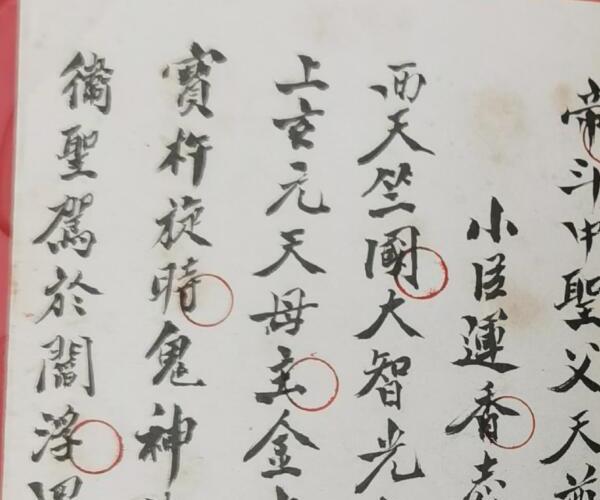 帝斗中聖父天尊
小臣運香志
西天竺國大智光
上玄元天母主金
寶杵旋時鬼神
備聖駕於閻浮